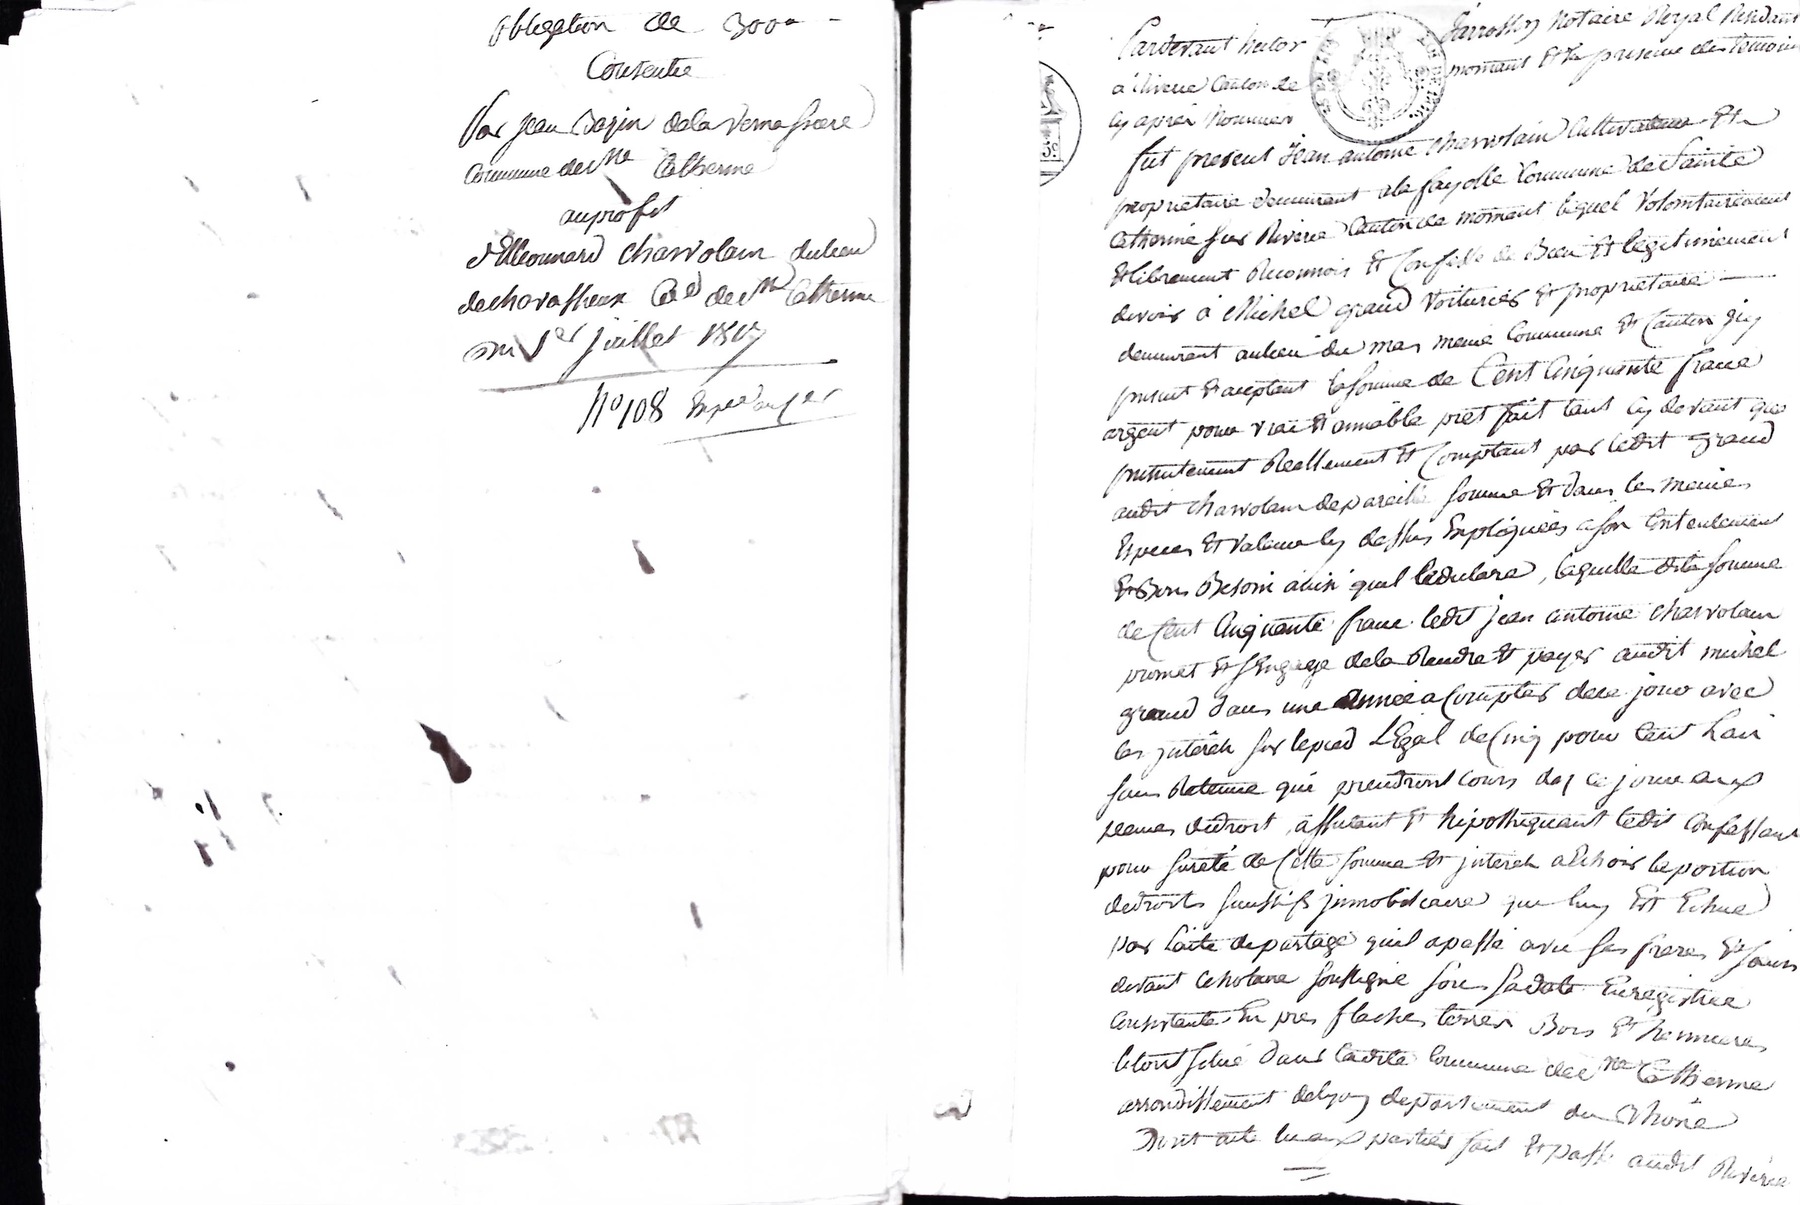 obligation de 300#
Consentie
Par jean Bazin dela Verna
Commune de Ste Catherine
au profit
d'Eleonnard Charvolain du lieu
de chavassieux Cne de Ste Catherine
du 1er juillet 1817
No 108
Pardevant hector jarrosson Notaire Royal Residant
à Riverie Canton de mornant Et en presence des temoins
Cy après Nommés
fut present Jean antoine Charvolain Cultivateur Et
proprietaire demeurant a la fayolle Commune de Sainte
Catherine sur Riverie Canton de mornant lequel Volontairement
Et librement Reconnois Et Confesse de Bien Et legitimement
devoir à Michel grand Voiturier Et proprietaire
demeurant au lieu du mas meme Commune Et Canton jcy
present Et acceptant la somme de Cent Cinquante francs
argent pour vrai Et amiable pret fait tant Cy devant que
presentement Reellement Et Comptant par ledit grand
audit Charvolain de pareille somme Et dans les memes
Especes Et Valeurs Cy dessus Expliquées a son Contentement
Et Bon Besoin ainsi quil le declare, laquelle dite somme
de Cent Cinquante francs ledit jean antoine Charvolain
promet Et s'Engage de la Rendre Et payer audit michel
grand dans une année a Compter de ce jour avec
les jnterets sur le pied LEgal de Cinq pour Cent L'an
sans Retenue qui prendront Cours des ce jour aux
peines de droit, assurant Et hipothequant ledit Confessant
pour sureté de Cette somme Et jnterets a Echoir la portion
de droits successifs jmmobiliaires que luy Est Echue
par l'acte de partage quil a passé avec ses freres Et soeurs
devant le Notaire soussigné sous sa date Enregistrée
Consistante En pres flaches terres Bois Et
le tout situé dans ladite Commune de Ste Catherine
arrondissement de lyon departement du Rhône
Dont acte lu aux parties fait Et passé audit Riverie